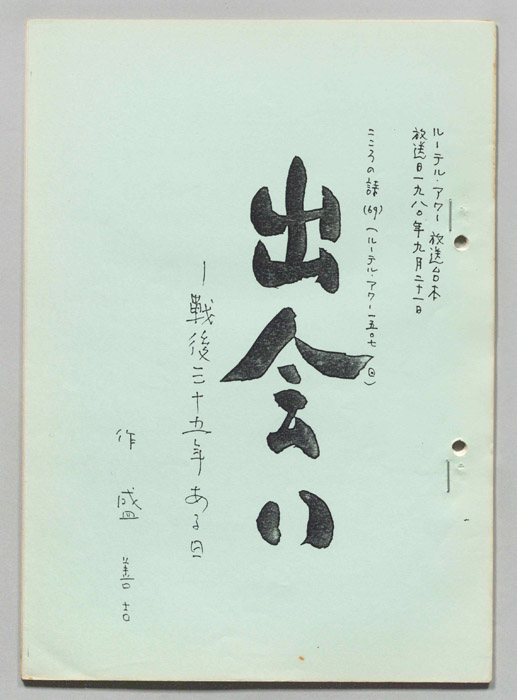 ルーテル・アワー 放送台本
放送日一九八〇年九月二十一日
こころの詩(69)(ルーテル・アワー一五〇七回)
出会い
―戦後三十五年ある日
作 盛善吉